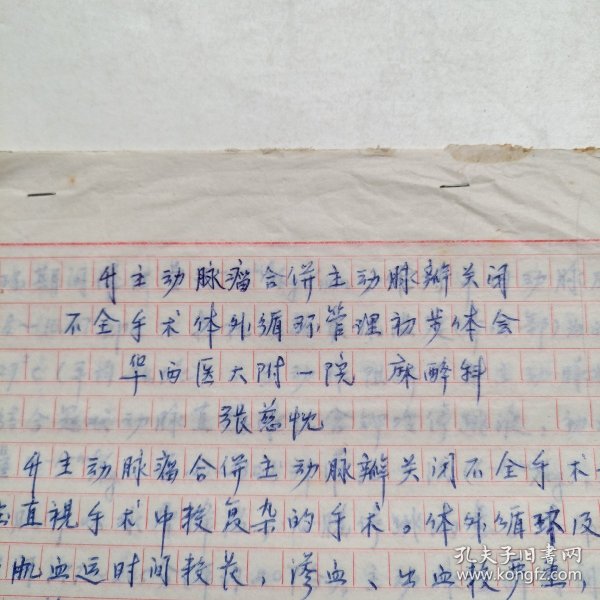 升主动脉瘤合併主动脉瓣关闭
不全手术体外循环管理初步体会
华西医大附一院 麻醉科
张慈悦
升主动脉瘤合併主动脉瓣关闭不全手术
直視手术中较复杂的手术。体外循环及
肌血运时间较长，渗血、出血较严重，
孔夫子旧书网
www.kongfz.com